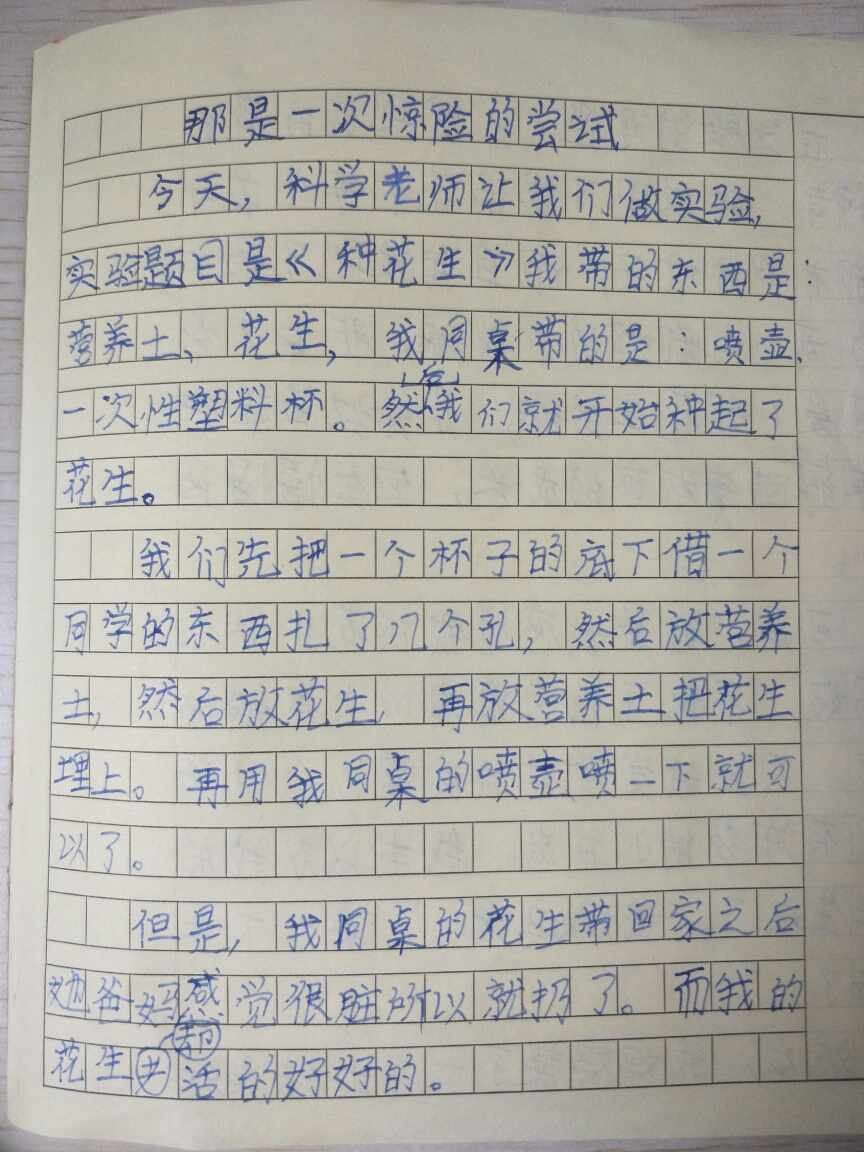 那是一次惊险的尝试
今天，科学老师让我们做实验，
实验题目是《种花生》我带的东西是：
营养土、花生，我同桌带的是：喷壶、
一次性塑料杯。然后我们就开始种起了
花生。
我们先把一个杯子的底下借一个
同学的东西扎了几个孔，然后放营养
土，然后放花生，再放营养土把花生
埋上。再用我同桌的喷壶喷一下就可
以了。
但是，我同桌的花生带回家之后
她爸妈感觉很脏所以就扔了。而我的
花生却活的好好的。